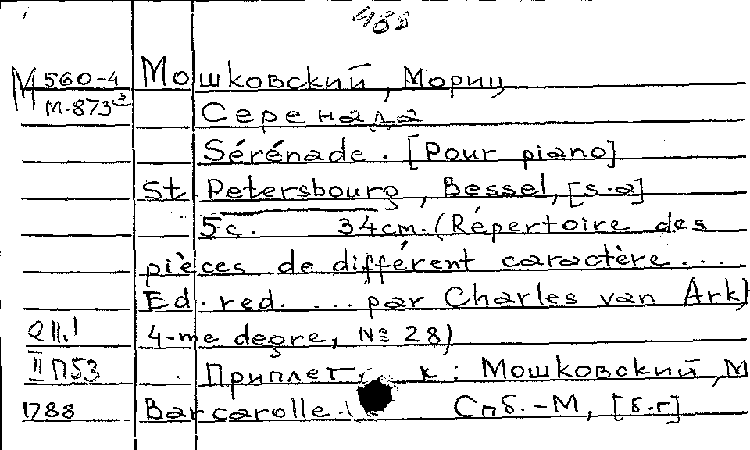 488
М 560-4 Мошковский, Мориц
М-873³ Серенада
Sérénade. [Pour piano]
St Petersbourg, Bessel, [s.a]
5с. 34cm. (Répertoire des
pièces de différent caractère...
Ed. red. ... par Charles van Ark)
4-me degre, № 28)
II П53 Приплет. к: Мошковский, М
1788 Barcarolle. Спб.-М, [б.г]